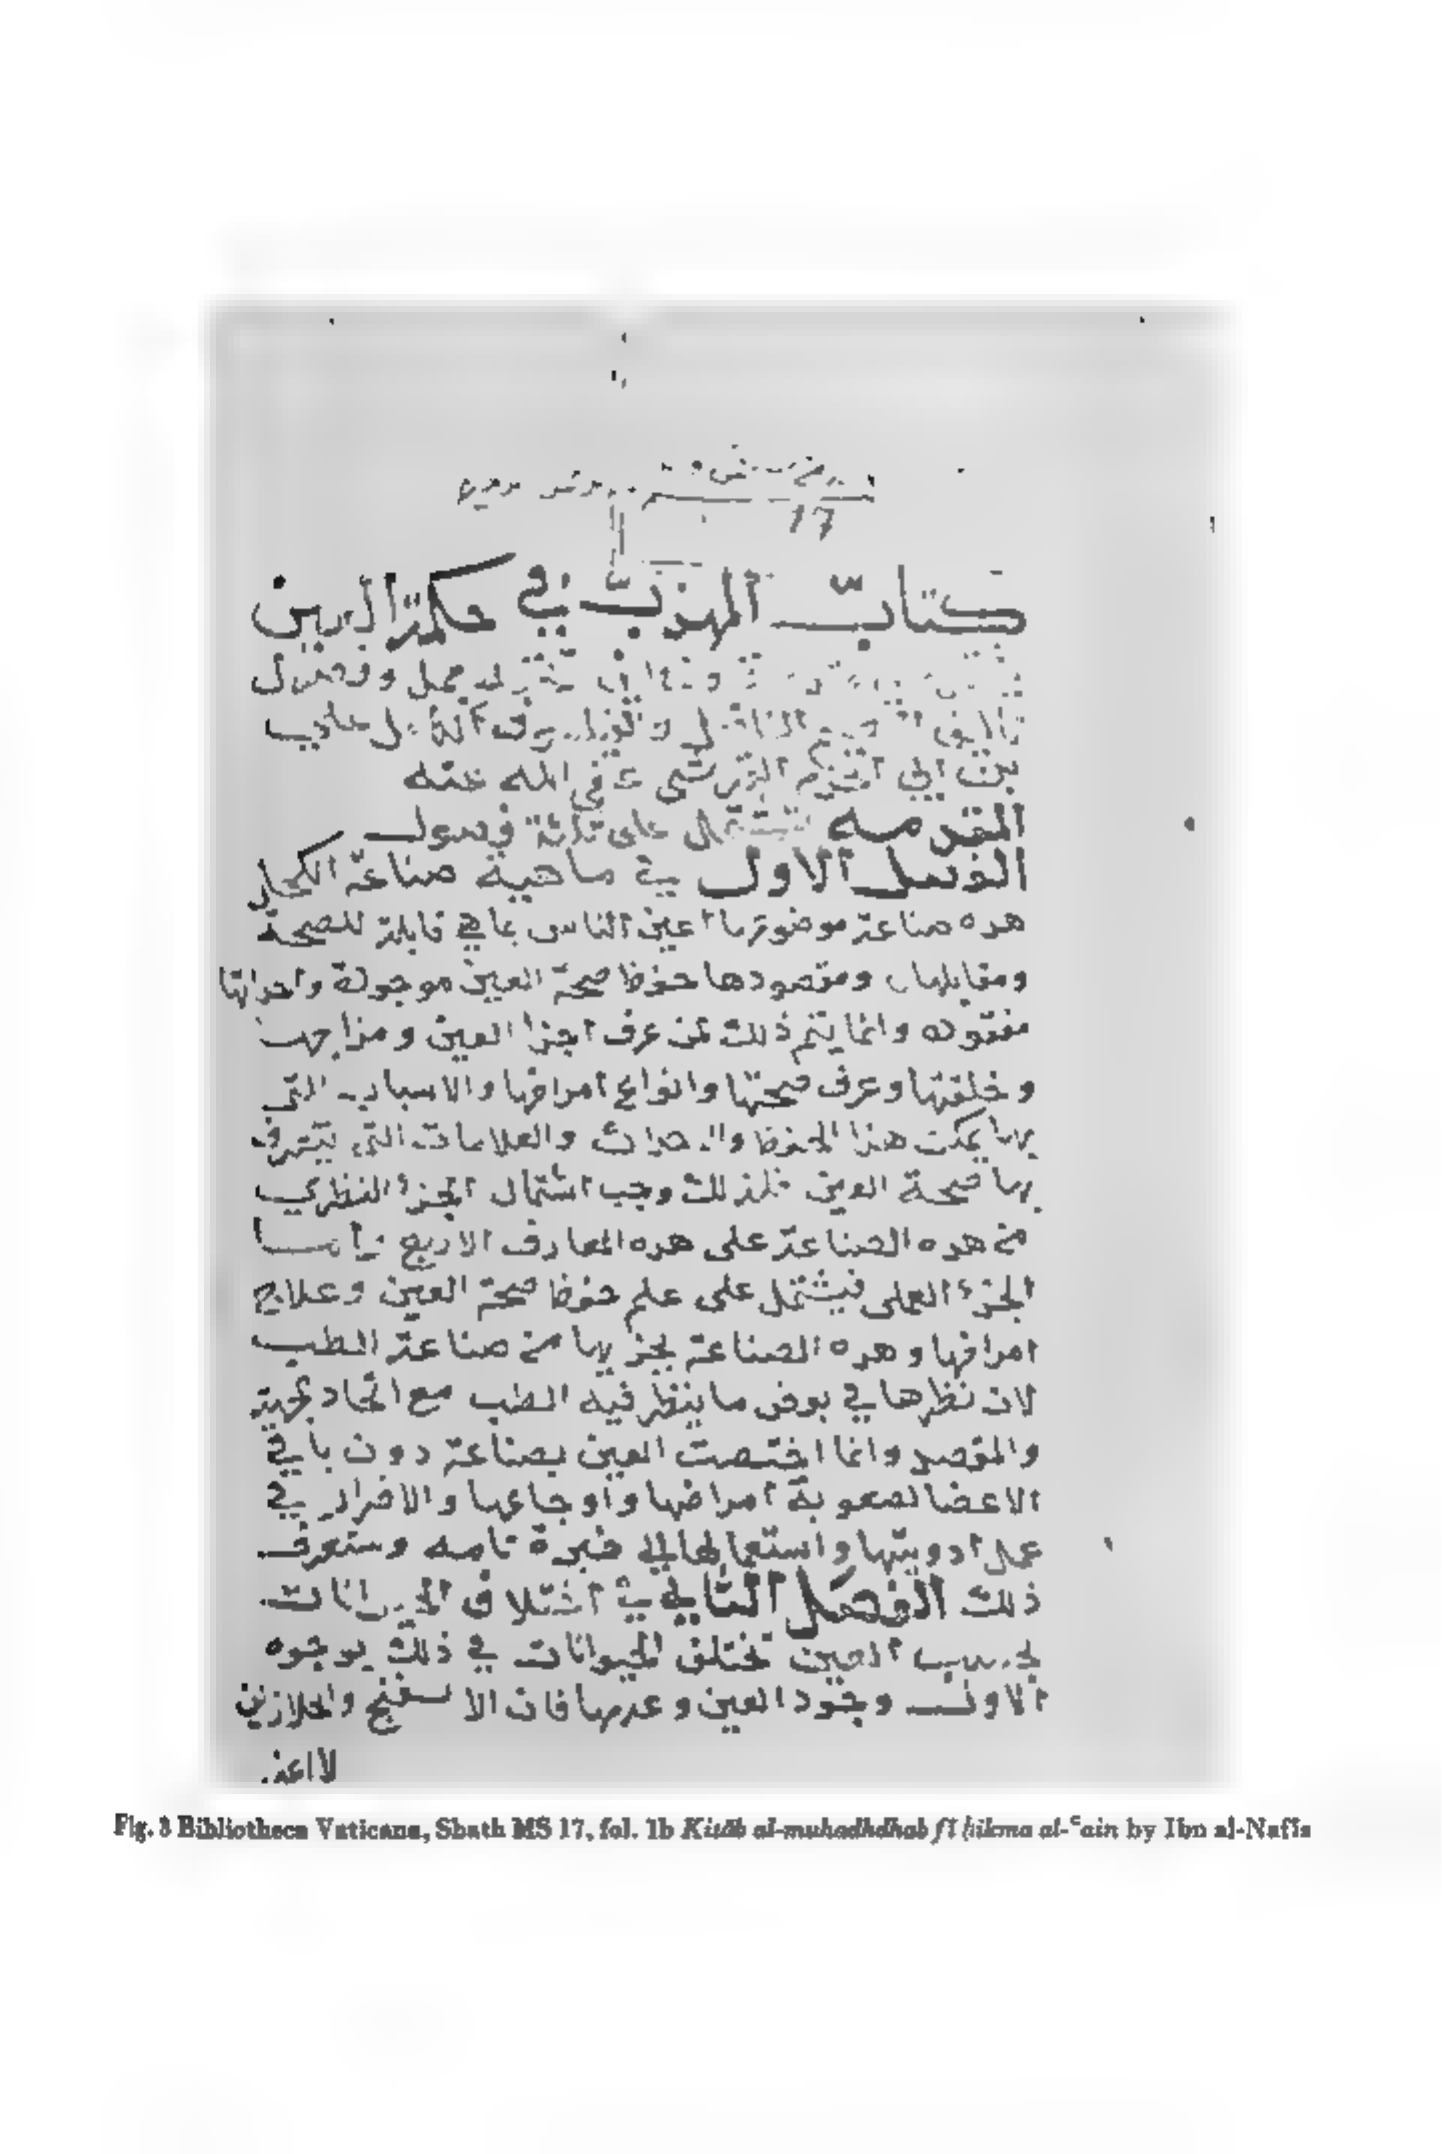 17
كتاب المهذب في حكمة العين
جمل وفصول
تاليف الفاضل
بن ابي الحزم القرشي عفي الله عنه
المقدمه تشتمل على ثلاثة فصول
الفصل الاول في ماهية صناعة الكحل
هذه صناعة موضوعها اعين الناس بما هي قابلة للصحة
ومقابلها ومقصودها حفظ صحة العين موجودة واحداثها
مفقوده وانما يتم ذلك لمن عرف اجزا العين ومزاجها
وخلقتها وعرف صحتها وانواع امراضها والاسباب التي
بها يمكن هذا الحفظ والاحداث والعلامات التي يتعرف
بها صحة العين فلذلك وجب اشتمال الجزء النظري
من هذه الصناعة على هذه المعارف الاربع واما
الجزء العملي فيشتمل على علم حفظ صحة العين وعلاج
امراضها وهذه الصناعة بجزيها من صناعة الطب
لان نظرها في بعض ما ينظر فيه الطب مع اتحاد
وانما اختصت العين بصناعة دون باقي
الاعضا لصعوبة امراضها واوجاعها والاضرار في
عمل ادويتها واستعمالها الي خبرة تامه وستعرف
ذلك الفصل الثاني في اختلاف الحيوانات
بحسب العين تختلف الحيوانات في ذلك بوجوه
الاول وجود العين وعدمها فان الاسفنج والحلازين
لا اعين
Fig. 3 Bibliotheca Vaticana, Sbath MS 17, fol. 1b Kitāb al-muhadhdhab fī ḥikma al-ʿain by Ibn al-Nafīs